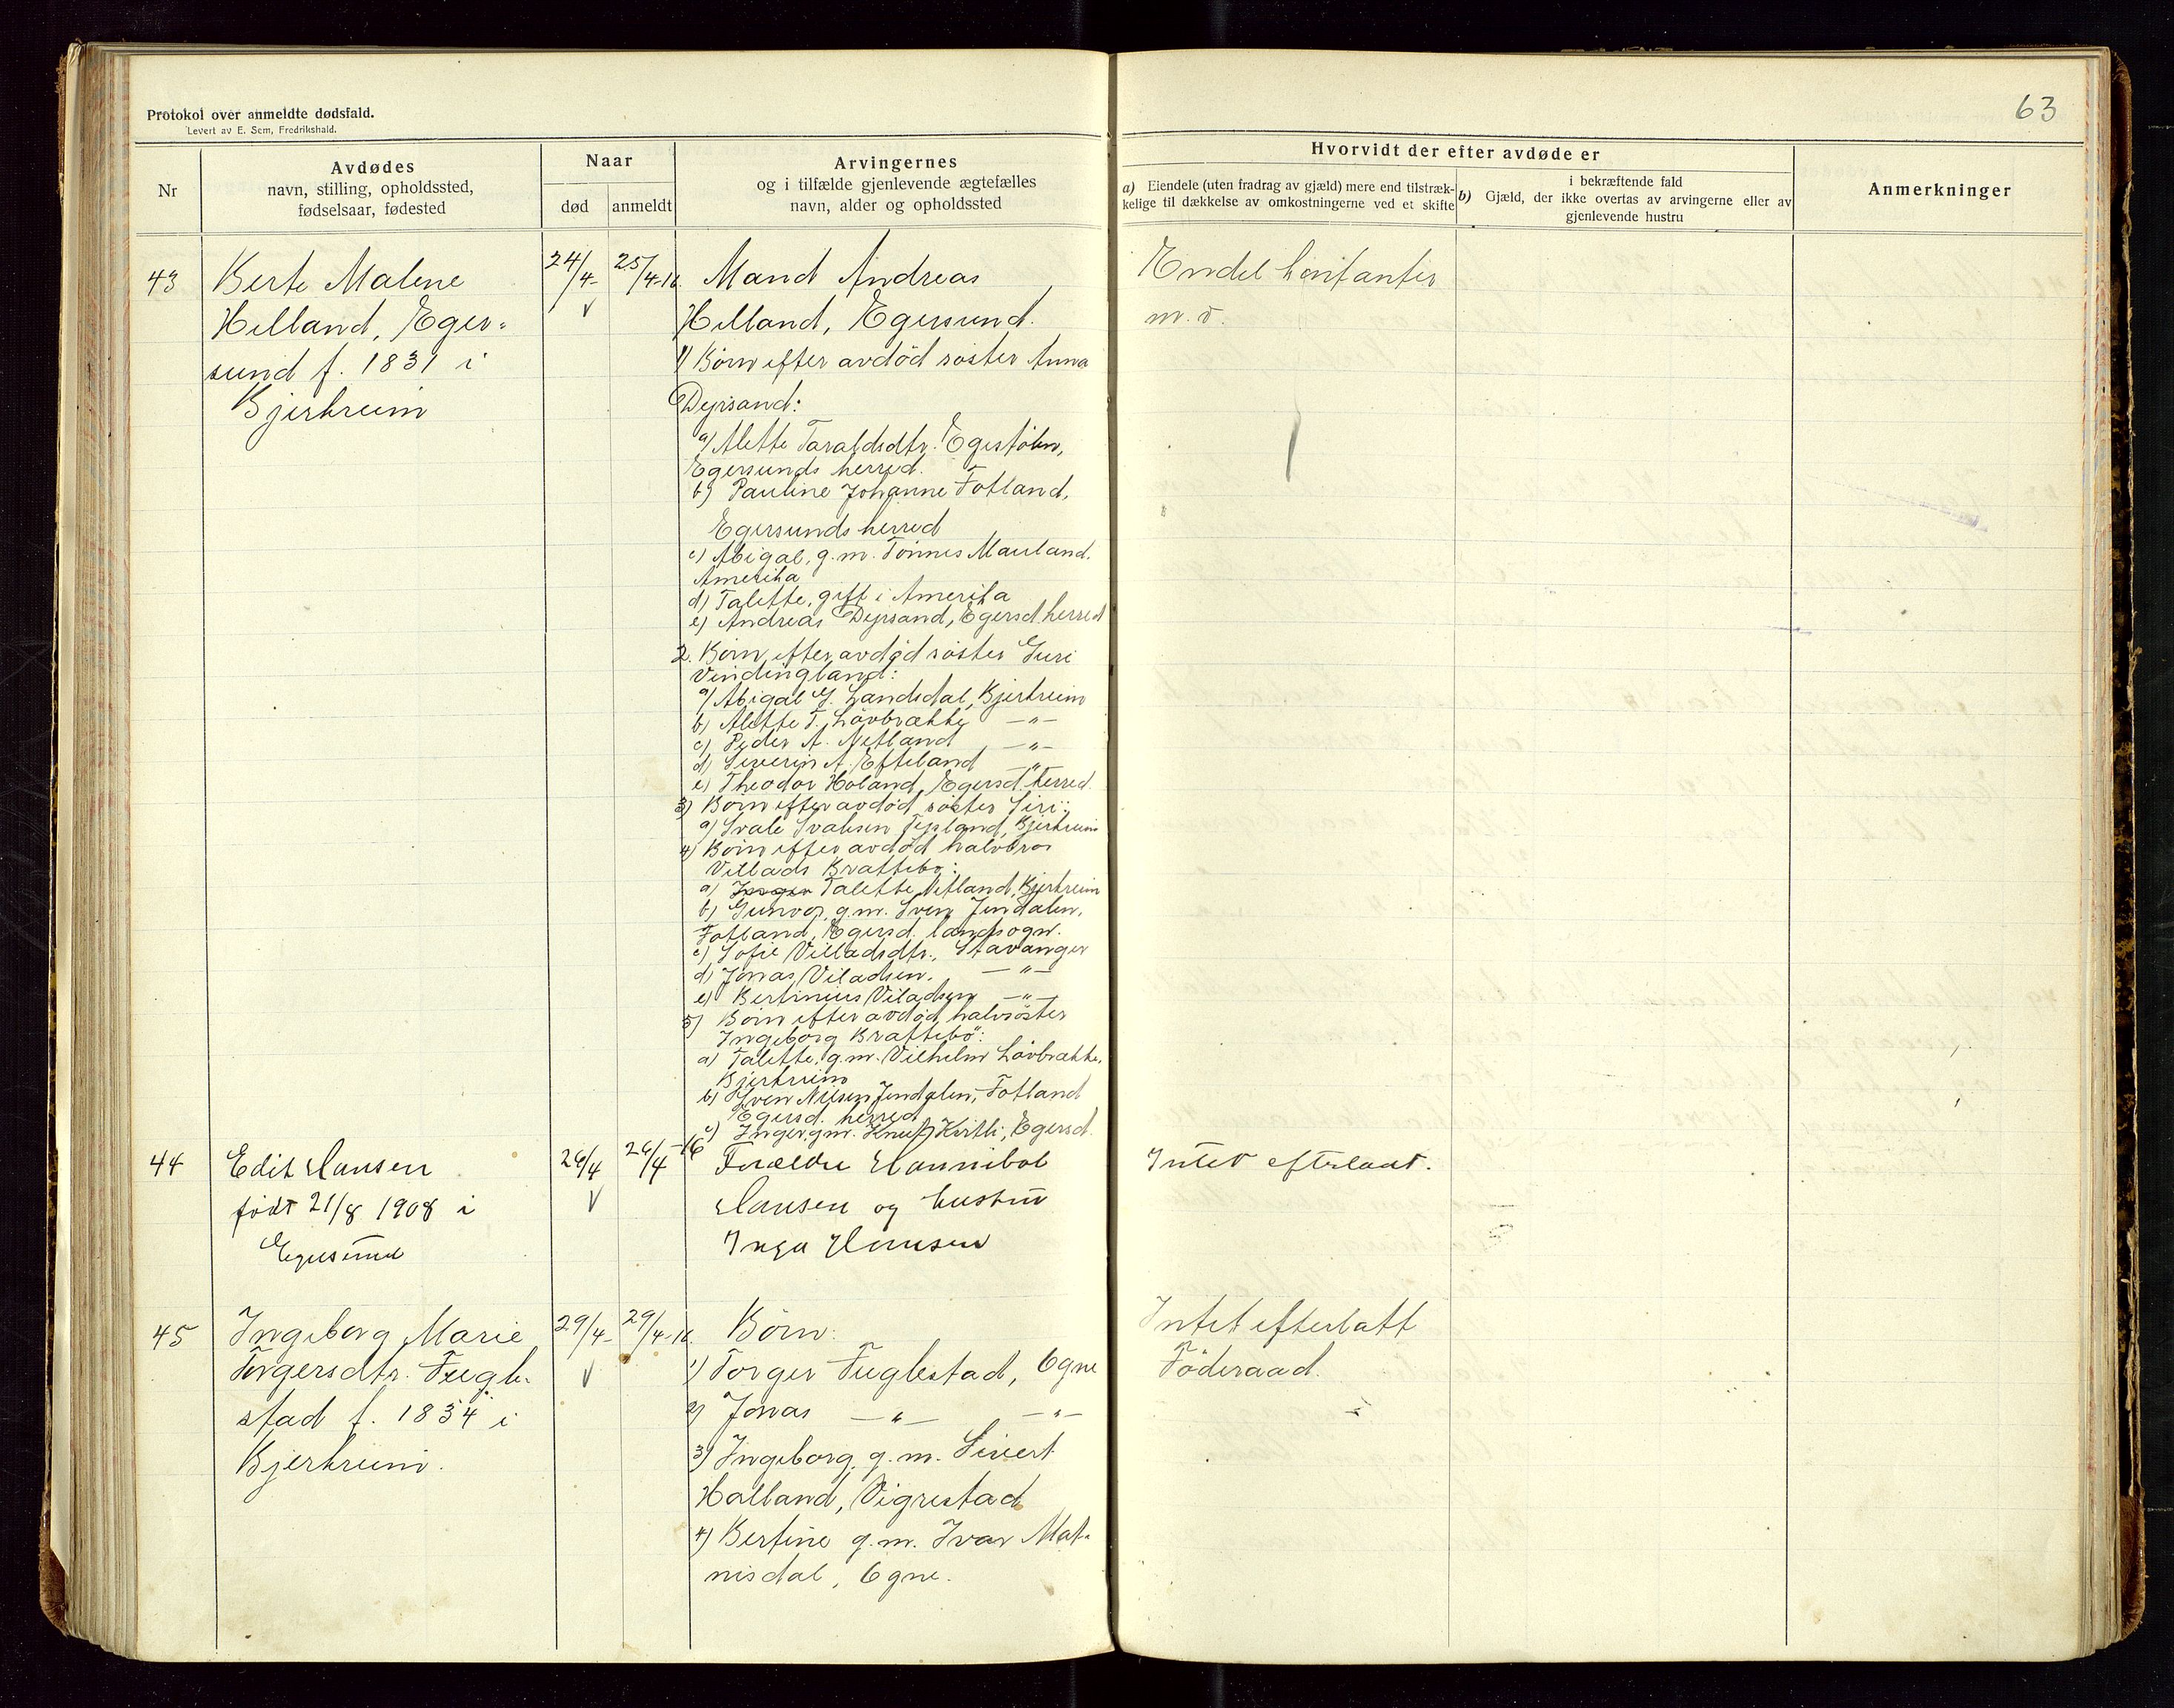 Protokol over anmeldte dødsfald.
Levert av E. Sem, Fredrikshald.
63
Nr
Avdødes
navn, stilling, opholdssted,
fødselsaar, fødested
Naar
død
anmeldt
Arvingernes
og i tilfælde gjenlevende ægtefælles
navn, alder og opholdssted
Hvorvidt der efter avdøde er
a) Eiendele (uten fradrag av gjæld) mere end tilstræk-
kelige til dækkelse av omkostningerne ved et skifte
i bekræftende fald
b) Gjæld, der ikke overtas av arvingerne eller av
gjenlevende hustru
Anmerkninger
43
Berte Malene
Helland, Eger-
sund f. 1831 i
Bjerkreim
24/4-
25/4-16.
Mand Andreas
Helland, Egersund.
1) Børn efter avdöd söster Anna
Dyrsand:
a) Alette Taraldsdtr. Egestölen,
Egersunds herred.
b) Pauline Johanne Fotland,
Egersunds herred
c) Abigal, g.m. Tönnes Mauland.
Amerika
d) Talette, gift i Amerika
e) Andreas Dyrsand, Egersd. herred
2. Børn efter avdöd söster Guri
Vindingland:
a) Abigal G. Landsdal, Bjerkreim
b) Alette T. Lövbrække —"—
c) Peder A. Netland —"—
d) Severin A. Efteland —"—
e) Theodor Holand, Egersd. herred.
3) Børn efter avdöd söster Siri:
a) Svale Svalesen Fejsland, Bjerkreim
4) Børn efter avdöd halvbror
Villads Brattebø:
a) Inger Talette Netland, Bjerkreim
b) Gunvor, g.m. Sven Jendalen,
Fotland, Egersd. landsogn.
c) Sofie Villadsdtr., Stavanger
d) Jonas Viladsen. —"—
e) Bertinius Viladsen —"—
5) Børn efter avdöd halvsöster
Ingeborg Brattebö:
a) Talette, g.m. Vilhelm Lövbrække,
Bjerkreim
b) Sven Nilsen Jendalen, Fotland
Egersd. herred
c) Inger g.m. Knut Kirtli, Egersd.
Endel kontanter
m. v.
44
Edit Hansen
født 21/8 1908 i
Egersund
26/4
26/4-16
Forældre Hannibal
Hansen og hustru
Inga Hansen
Intet efterladt.
45
Ingeborg Marie
Torgersdtr. Fugle-
stad f. 1834 i
Bjerkreim.
29/4-
29/4-16.
Børn:
1) Torger Fuglestad, Ogne
2) Jonas —"— —"—
3) Ingeborg, g.m. Sivert
Holland, Vigrestad
4) Bertine g.m. Ivar Mat-
nisdal, Ogne.
Intet efterlatt
Föderaad.